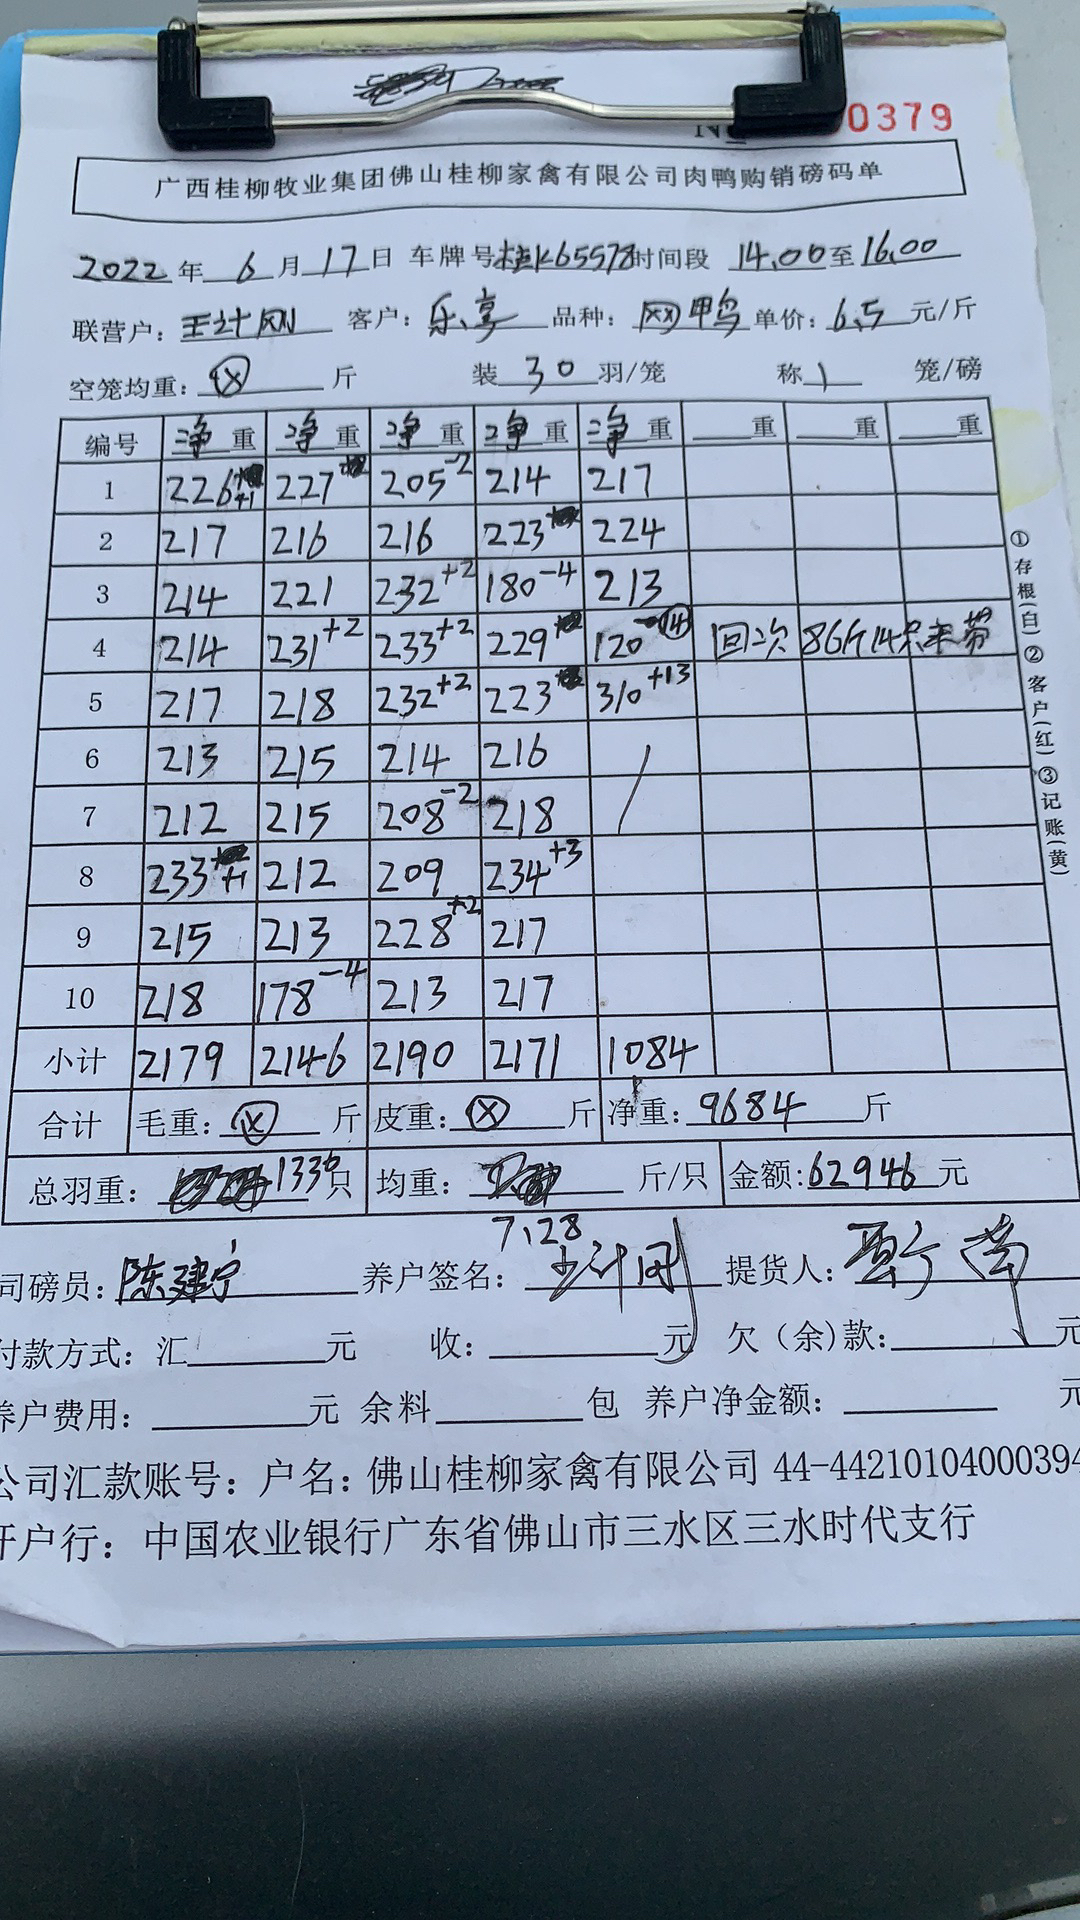 № 0379
广西桂柳牧业集团佛山桂柳家禽有限公司肉鸭购销磅码单
2022年 6月17日 车牌号桂K65578时间段 14.00至16.00
联营户:王计刚 客户:乐享 品种: 鸭 单价:6.5元/斤
空笼均重:ⓧ斤 装30羽/笼 称1笼/磅
编号 净重 净重 净重 净重 净重 重 重 重
1 226+1 227 205-2 214 217
2 217 216 216 223 224
3 214 221 232+2 180-4 213
4 214 231+2 233+2 229 120-⑭ 回次 86斤14只未带
5 217 218 232+2 223 310+13
6 213 215 214 216 /
7 212 215 208-2 218
8 233+1 212 209 234+3
9 215 213 228+2 217
10 218 178-4 213 217
小计 2179 2146 2190 2171 1084
合计 毛重:ⓧ斤 皮重:ⓧ斤 净重:9684斤
总羽重:1330只 均重: 斤/只 金额:62946元
7.28
司磅员:陈建宁 养户签名: 提货人:
付款方式:汇 元 收: 元 欠(余)款: 元
养户费用: 元 余料 包 养户净金额: 元
公司汇款账号:户名:佛山桂柳家禽有限公司 44-44210104000394
开户行:中国农业银行广东省佛山市三水区三水时代支行
①存根(白)②客户(红)③记账(黄)